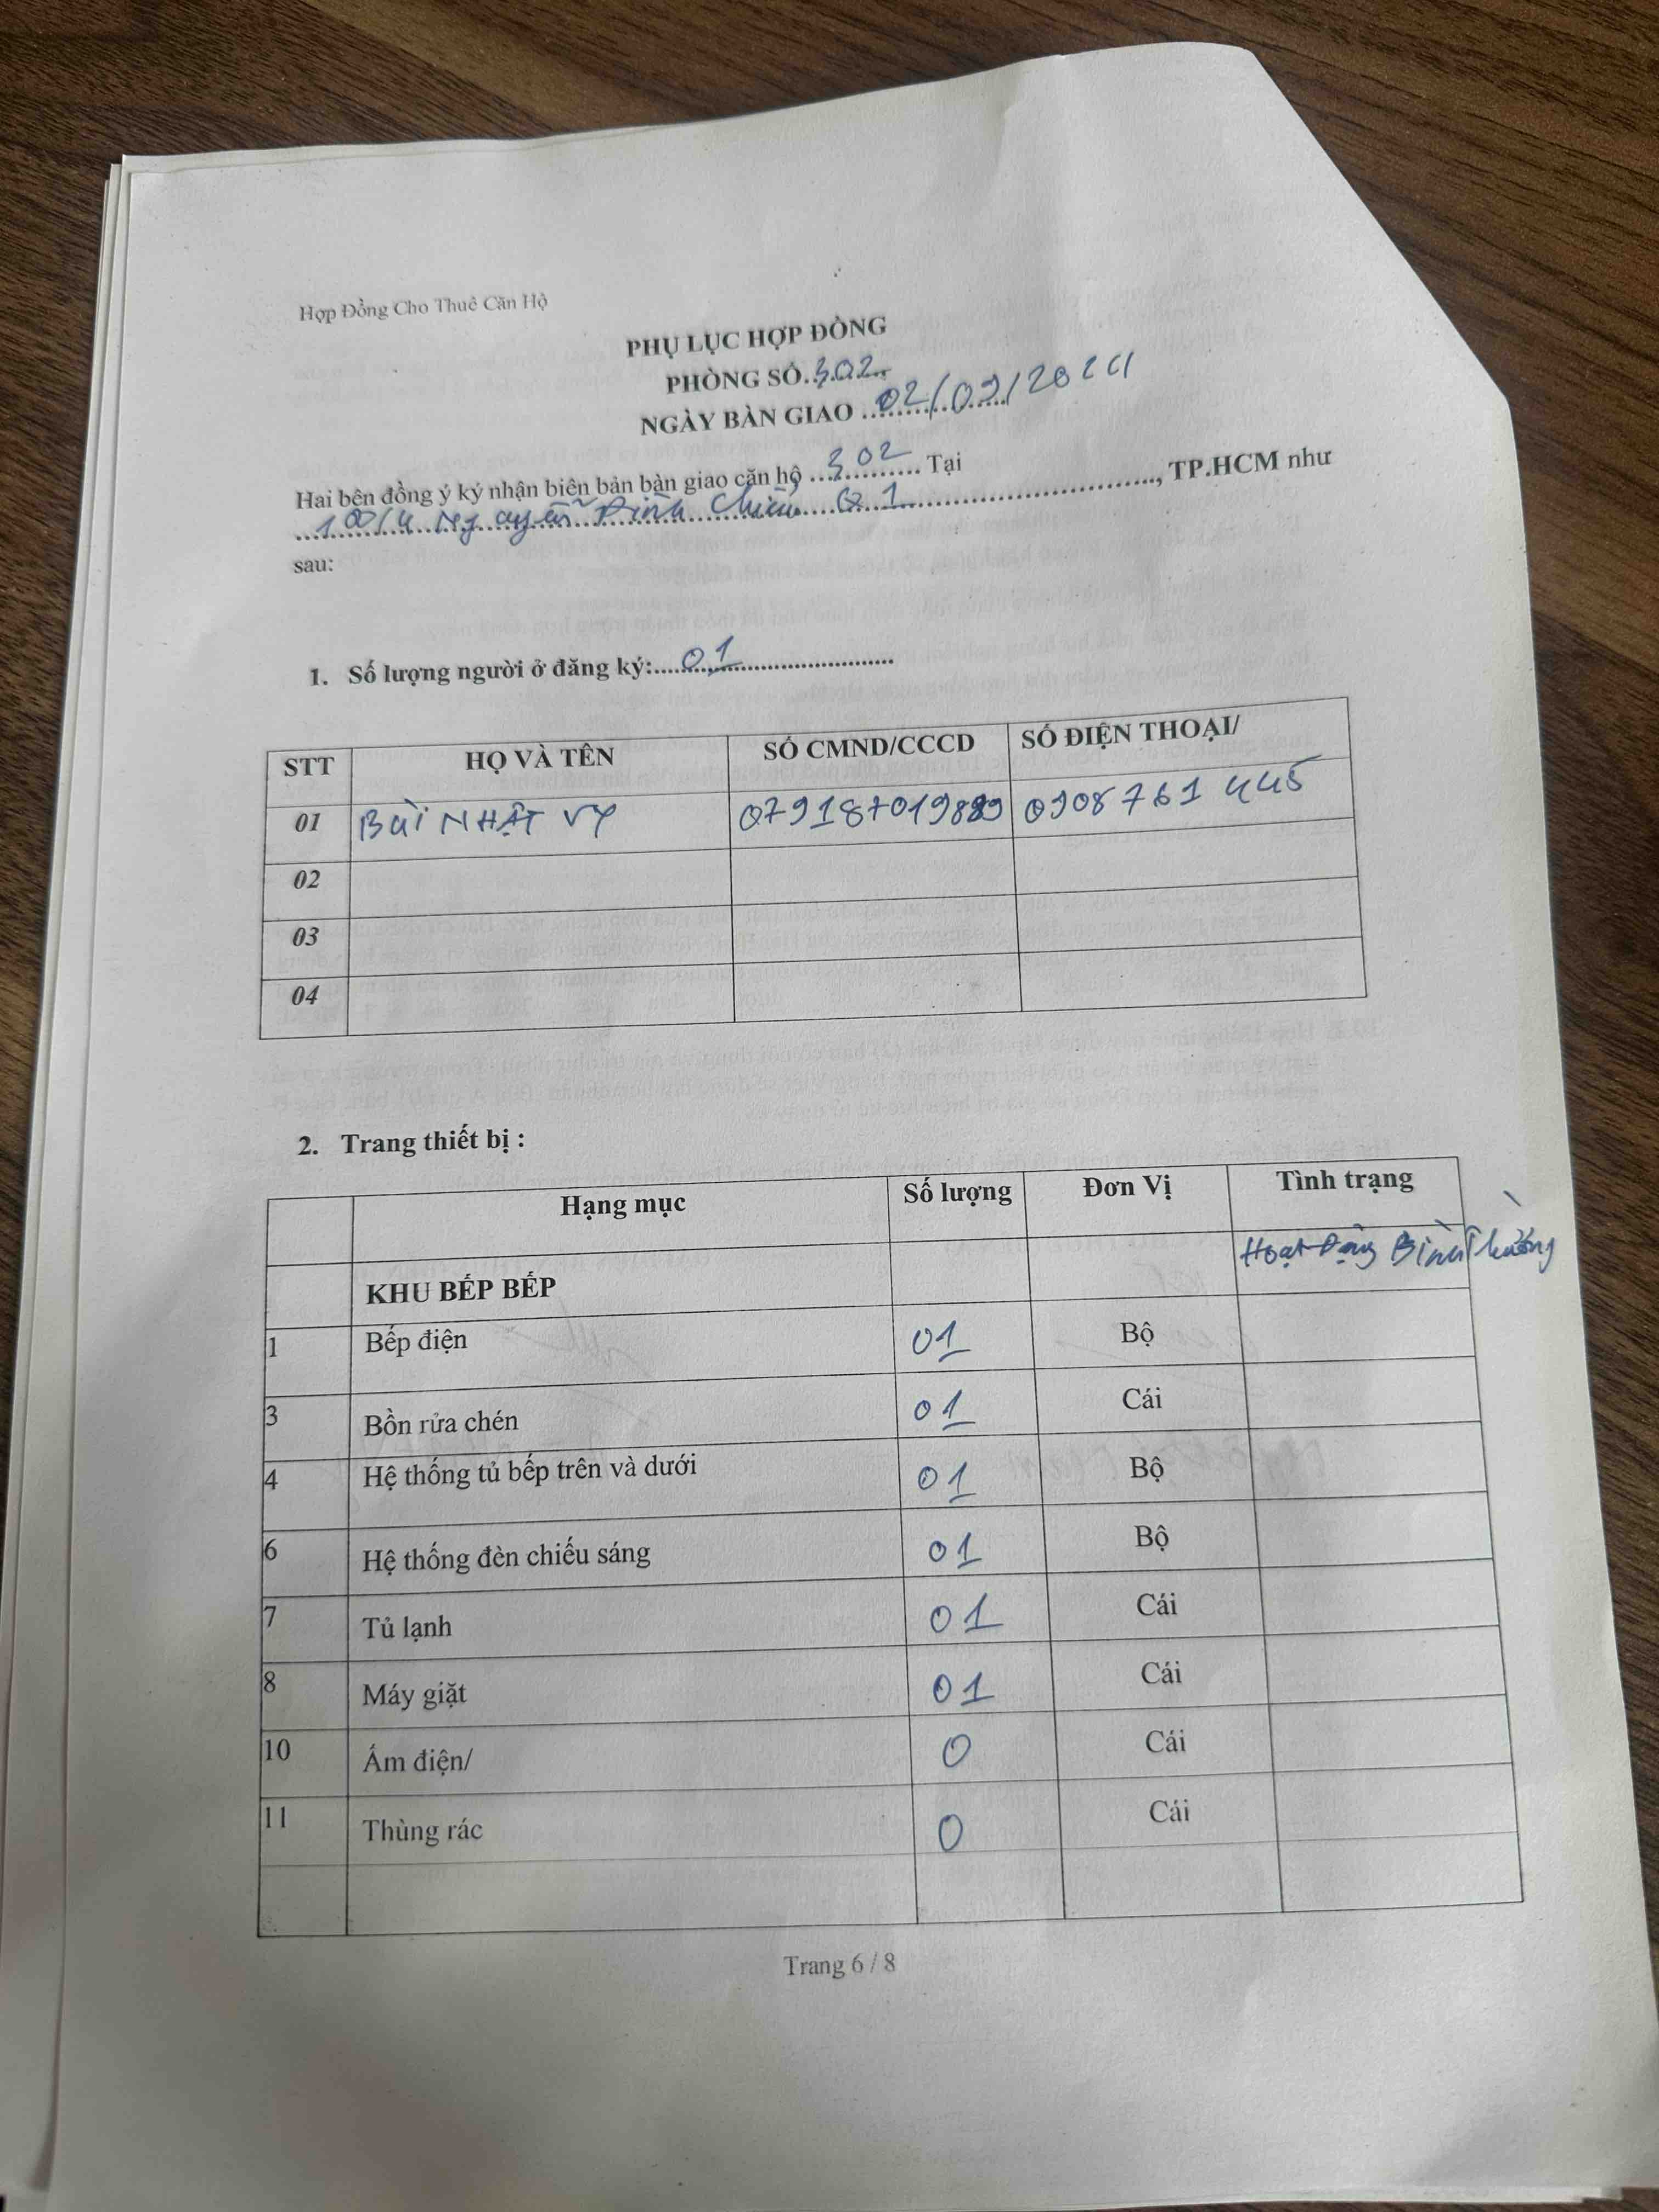 Hợp Đồng Cho Thuê Căn Hộ
PHỤ LỤC HỢP ĐỒNG
PHÒNG SỐ..302..
NGÀY BÀN GIAO ..02/09/2024
Hai bên đồng ý ký nhận biên bản bàn giao căn hộ ...302... Tại
...100/4 Nguyễn Đình Chiểu Q1..., TP.HCM như
sau:
1. Số lượng người ở đăng ký:....01....
STT HỌ VÀ TÊN SỐ CMND/CCCD SỐ ĐIỆN THOẠI/
01 BÙI NHẬT VY 0908 761 445
02
03
04
2. Trang thiết bị :
Hạng mục Số lượng Đơn Vị Tình trạng
KHU BẾP BẾP Hoạt Động Bình Thường
1 Bếp điện 01 Bộ
3 Bồn rửa chén 01 Cái
4 Hệ thống tủ bếp trên và dưới 01 Bộ
6 Hệ thống đèn chiếu sáng 01 Bộ
7 Tủ lạnh 01 Cái
8 Máy giặt 01 Cái
10 Ấm điện/ 0 Cái
11 Thùng rác 0 Cái
Trang 6 / 8